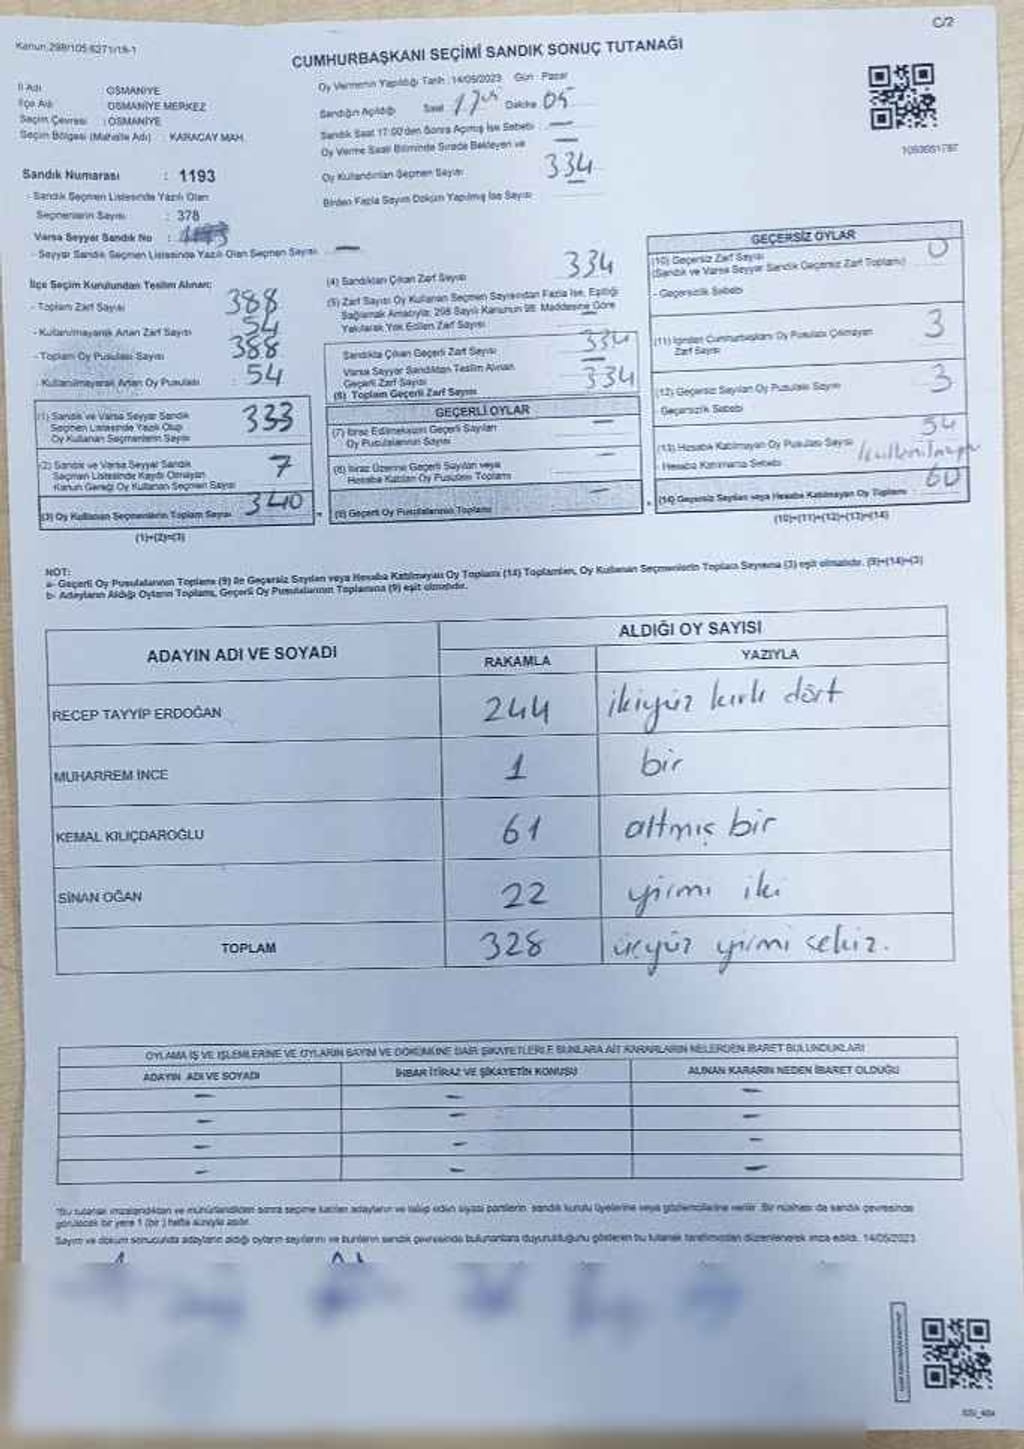 C/2
Kanun.298/105.6271/18-1
CUMHURBAŞKANI SEÇİMİ SANDIK SONUÇ TUTANAĞI
İl Adı OSMANİYE
İlçe Adı OSMANİYE MERKEZ
Seçim Çevresi : OSMANİYE
Seçim Bölgesi (Mahalle Adı) : KARACAY MAH.
Sandık Numarası : 1193
- Sandık Seçmen Listesinde Yazılı Olan
Seçmenlerin Sayısı : 378
Varsa Seyyar Sandık No :
- Seyyar Sandık Seçmen Listesinde Yazılı Olan Seçmen Sayısı —
Oy Vermenin Yapıldığı Tarih : 14/05/2023 Gün : Pazar
Sandığın Açıldığı Saat 17 Dakika 05
Sandık Saat 17:00'den Sonra Açılmış İse Sebebi —
Oy Verme Saati Bitiminde Sırada Bekleyen ve —
Oy Kullandırılan Seçmen Sayısı 334
Birden Fazla Sayım Döküm Yapılmış İse Sayısı —
1093651787
İlçe Seçim Kurulundan Teslim Alınan:
- Toplam Zarf Sayısı 388
- Kullanılmayarak Artan Zarf Sayısı 54
- Toplam Oy Pusulası Sayısı 388
- Kullanılmayarak Artan Oy Pusulası : 54
(1) Sandık ve Varsa Seyyar Sandık
Seçmen Listesinde Yazılı Olup
Oy Kullanan Seçmenlerin Sayısı 333
(2) Sandık ve Varsa Seyyar Sandık
Seçmen Listesinde Kaydı Olmayan
Kanun Gereği Oy Kullanan Seçmen Sayısı 7
(3) Oy Kullanan Seçmenlerin Toplam Sayısı 340
(1)+(2)=(3)
(4) Sandıktan Çıkan Zarf Sayısı 334
(5) Zarf Sayısı Oy Kullanan Seçmen Sayısından Fazla İse, Eşitliği
Sağlamak Amacıyla; 298 Sayılı Kanunun 98. Maddesine Göre
Yakılarak Yok Edilen Zarf Sayısı —
Sandıkta Çıkan Geçerli Zarf Sayısı 334
Varsa Seyyar Sandıktan Teslim Alınan
Geçerli Zarf Sayısı —
(6) Toplam Geçerli Zarf Sayısı 334
GEÇERLİ OYLAR
(7) İtiraz Edilmeksizin Geçerli Sayılan
Oy Pusulalarının Sayısı —
(8) İtiraz Üzerine Geçerli Sayılan veya
Hesaba Katılan Oy Pusulası Toplamı —
(9) Geçerli Oy Pusulalarının Toplamı —
GEÇERSİZ OYLAR
(10) Geçersiz Zarf Sayısı 0
(Sandık ve Varsa Seyyar Sandık Geçersiz Zarf Toplamı)
- Geçersizlik Sebebi
(11) İçinden Cumhurbaşkanı Oy Pusulası Çıkmayan
Zarf Sayısı 3
(12) Geçersiz Sayılan Oy Pusulası Sayısı 3
Geçersizlik Sebebi
(13) Hesaba Katılmayan Oy Pusulası Sayısı 54
- Hesaba Katılmama Sebebi
(14) Geçersiz Sayılan veya Hesaba Katılmayan Oy Toplamı 60
(10)+(11)+(12)+(13)=(14)
NOT:
a- Geçerli Oy Pusulalarının Toplamı (9) ile Geçersiz Sayılan veya Hesaba Katılmayan Oy Toplamı (14) Toplamları, Oy Kullanan Seçmenlerin Toplam Sayısına (3) eşit olmalıdır. (9)+(14)=(3)
b- Adayların Aldığı Oyların Toplamı, Geçerli Oy Pusulalarının Toplamına (9) eşit olmalıdır.
ADAYIN ADI VE SOYADI ALDIĞI OY SAYISI
RAKAMLA YAZIYLA
RECEP TAYYİP ERDOĞAN 244 ikiyüz kırk dört
MUHARREM İNCE 1 bir
KEMAL KILIÇDAROĞLU 61 altmış bir
SİNAN OĞAN 22 yirmi iki
TOPLAM 328 üçyüz yirmi sekiz.
OYLAMA İŞ VE İŞLEMLERİNE VE OYLARIN SAYIM VE DÖKÜMÜNE DAİR ŞİKAYETLERLE BUNLARA AİT KARARLARIN NELERDEN İBARET BULUNDUKLARI
ADAYIN ADI VE SOYADI İHBAR İTİRAZ VE ŞİKAYETİN KONUSU ALINAN KARARIN NEDEN İBARET OLDUĞU
— — —
— — —
— — —
— — —
*Bu tutanak imzalandıktan ve mühürlendikten sonra seçime katılan adayların ve talep eden siyasi partilerin sandık kurulu üyelerine veya gözlemcilerine verilir. Bir nüshası da sandık çevresinde
görülecek bir yere 1 (bir) hafta süreyle asılır.
Sayım ve döküm sonucunda adayların aldığı oyların sayılarını ve bunların sandık çevresinde bulunanlara duyurulduğunu gösteren bu tutanak tarafımızdan düzenlenerek imza edildi. 14/05/2023